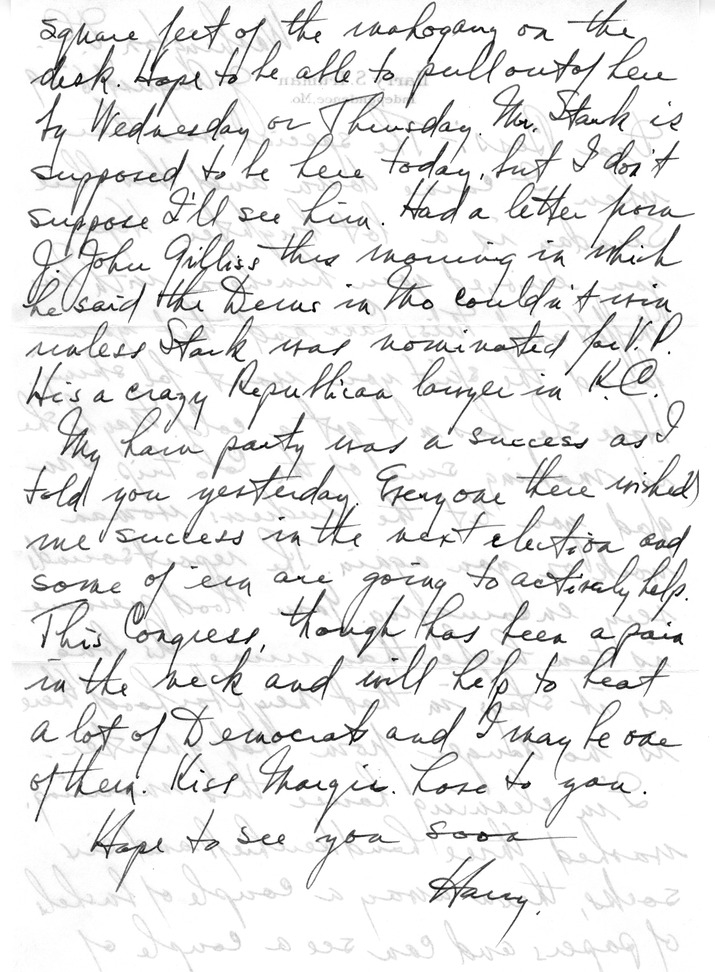 square feet of the mahogany on the
desk. Hope to be able to pull out of here
by Wednesday or Thursday. Mr. Stark is
supposed to be here today, but I don't
suppose I'll see him. Had a letter from
J. John Gilliss this morning in which
he said the Dems in Mo couldn't win
unless Stark was nominated for V.P.
He's a crazy Republican lawyer in K.C.
My ham party was a success as I
told you yesterday. Everyone there wished
me success in the next election and
some of 'em are going to actively help.
This Congress, though has been a pain
in the neck and will help to beat
a lot of Democrats and I may be one
of them. Kiss Margie. Love to you.
Hope to see you soon
Harry.